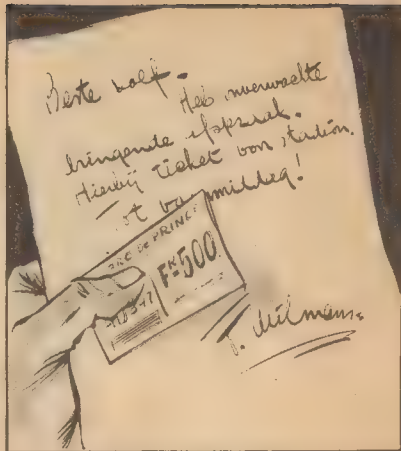 Beste Rolf.
Heb onverwachte
dringende afspraak.
Hierbij ticket voor stadion.
Tot vanmiddag!
PARC DE PRINCE
FR 500
J. Milmans